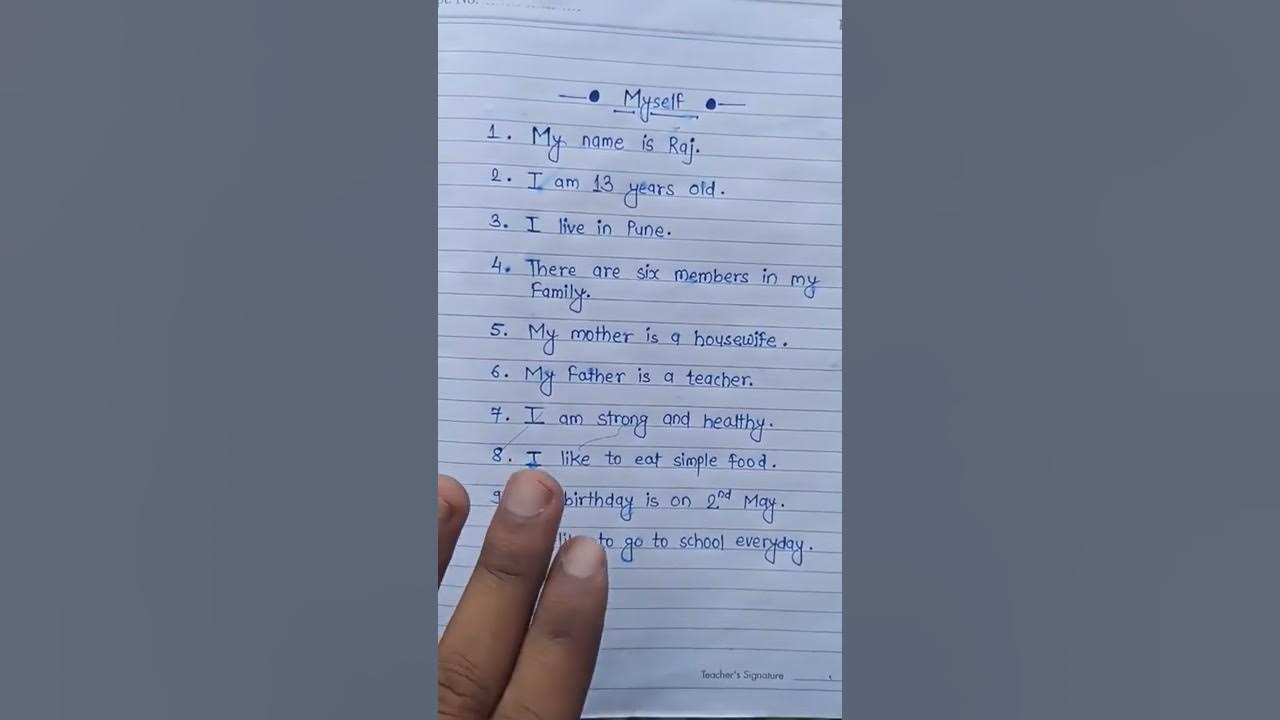 Myself
1. My name is Raj.
2. I am 13 years old.
3. I live in Pune.
4. There are six members in my
family.
5. My mother is a housewife.
6. My father is a teacher.
7. I am strong and healthy.
8. I like to eat simple food.
9 birthday is on 2nd May.
to go to school everyday.
Teacher's Signature